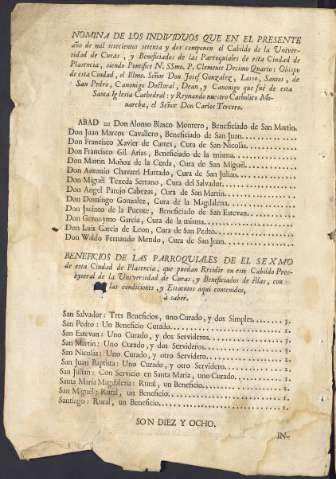 NOMINA DE LOS INDIVIDUOS QUE EN EL PRESENTE
año de mil setecientos setenta y dos componen el Cabildo de la Univer-
sidad de Curas, y Beneficiados de las Parroquiales de esta Ciudad de
Plasencia, siendo Pontifice N. SSmo. P. Clemente Decimo Quarto: Obispo
de esta Ciudad, el Elmo. Señor Don Josef Gonzalez, Laso, Santos, de
San Pedro, Canonigo Doctoral, Dean, y Canonigo que fué de esta
Santa Iglesia Cathedral: y Reynando nuestro Catholico Mo-
narcha, el Señor Don Carlos Tercero.
ABAD = Don Alonso Blasco Montero, Beneficiado de San Martin.
Don Juan Marcos Cavallero, Beneficiado de San Juan.
Don Francisco Xavier de Cantes, Cura de San Nicolas.
Don Francisco Gil Arias, Beneficiado de la misma.
Don Martin Muñoz de la Cerda, Cura de San Miguel.
Don Antonio Chavarri Hurtado, Cura de San Julian.
Don Miguel Texeda Serrano, Cura del Salvador.
Don Angel Parejo Cabezas, Cura de San Martin.
Don Domingo Gonzalez, Cura de la Magdalena.
Don Jacinto de la Puente, Beneficiado de San Estevan.
Don Geronymo Garcia, Cura de la misma.
Don Luis Garcia de Leon, Cura de San Pedro.
Don Waldo Fernando Mendo, Cura de San Juan.
BENEFICIOS DE LAS PARROQUIALES DEL SEXMO
de esta Ciudad de Plasencia, que puedan Residir en este Cabildo Pres-
byteral de la Universidad de Curas, y Beneficiados de ellas, con
las condiciones, y Estatutos aqui contenidos,
à saber.
San Salvador: Tres Beneficios, uno Curado, y dos Simples. 3.
San Pedro: Un Beneficio Curado. 1.
San Estevan: Uno Curado, y dos Servideros. 3.
San Martin: Uno Curado, y dos Servideros. 3.
San Nicolas: Uno Curado, y otro Servidero. 2.
San Juan Baptista: Uno Curado, y otro Servidero. 2.
San Julian: Con Servicio en Santa Maria, uno Curado. 1.
Santa Maria Magdalena: Rural, un Beneficio. 1.
San Miguel: Rural, un Beneficio. 1.
Santiago: Rural, un Beneficio. 1.
SON DIEZ Y OCHO.
IN-